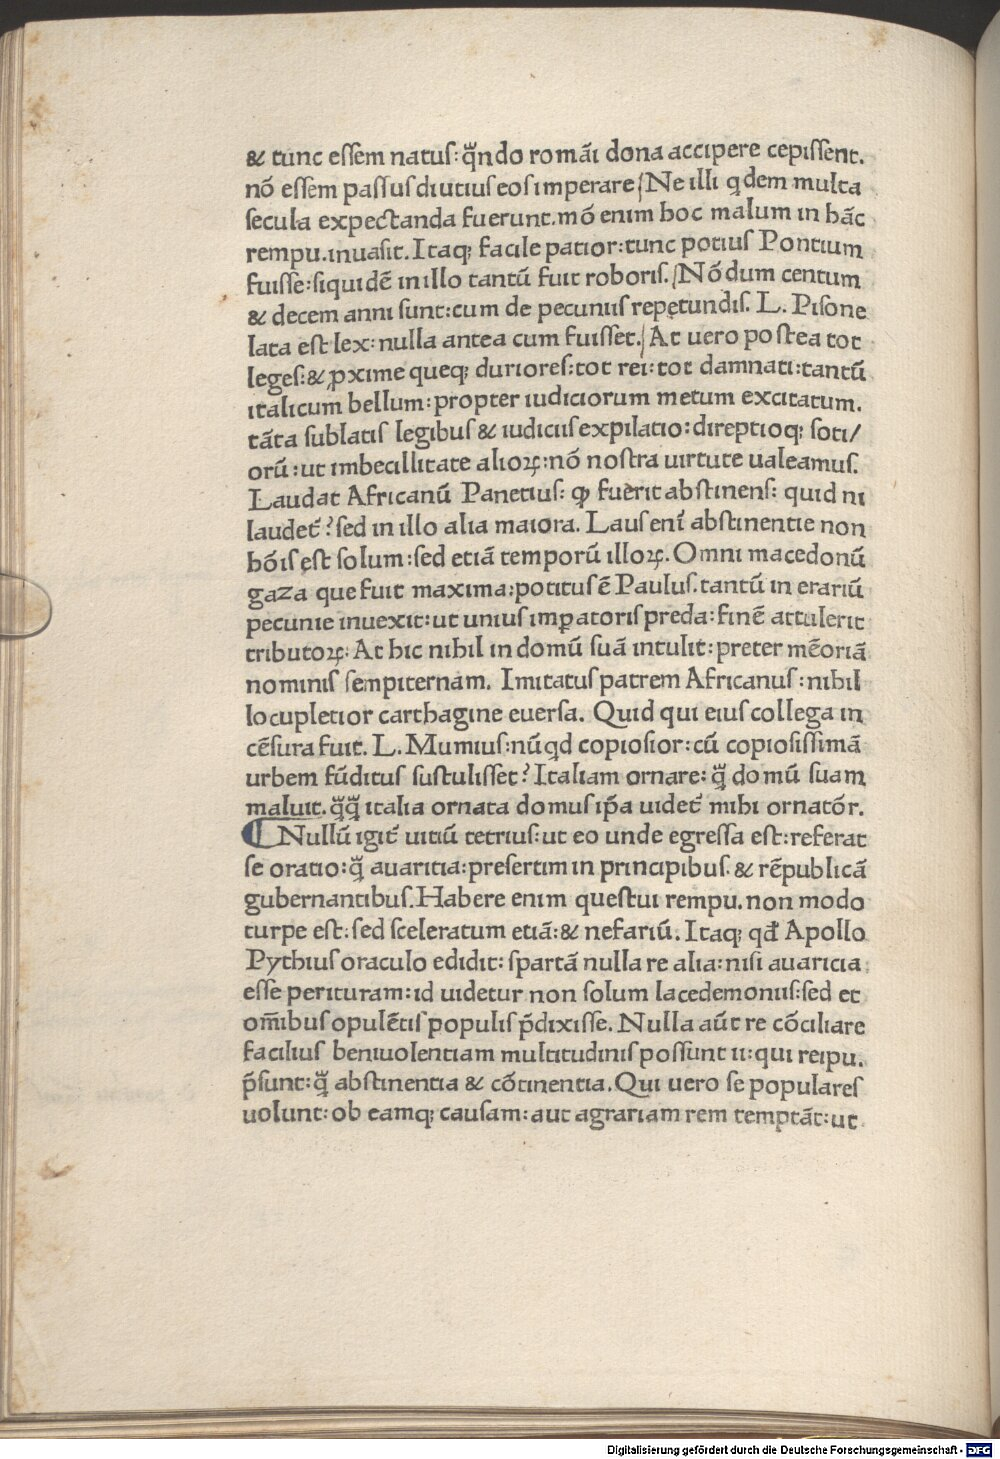 & tunc essem natus: q̃ndo romãi dona accipere cepissent.
nõ essem passus diutius eos imperare/ Ne illi qdem multa
secula expectanda fuerunt. mõ enim hoc malum in hãc
rempu. inuasit. Itaq; facile patior: tunc potius Pontium
fuisse: siquidẽ in illo tantũ fuit roboris./ Nõdum centum
& decem anni sunt: cum de pecuniis repetundis. L. Pisone
lata est lex: nulla antea cum fuisset./ At uero postea tot
leges: & ꝓxime queq; duriores: tot rei: tot damnati: tantũ
italicum bellum: propter iudiciorum metum excitatum.
tãta sublatis legibus & iudiciis expilatio: direptioq; soti/
orũ: ut imbecillitate alioꝝ: nõ nostra uirtute ualeamus.
Laudat Africanũ Panetius: ꝙ fuerit abstinens: quid ni
laudet̃? sed in illo alia maiora. Laus eni͂ abstinentie non
hõis est solum: sed etiã temporũ illoꝝ. Omni macedonũ
gaza que fuit maxima: potitus ẽ Paulus. tantũ in erariũ
pecunie inuexit: ut unius imꝑatoris preda: finẽ attulerit
tributoꝝ: At hic nihil in domũ suã intulit: preter mẽoriã
nominis sempiternam. Imitatus patrem Africanus: nihil
locupletior carthagine euersa. Quid qui eius collega in
cẽsura fuit. L. Mumius: nũqd copiosior: cũ copiosissimã
urbem fũditus sustulisset? Italiam ornare: q̃ domũ suam
maluit. q̃q̃ italia ornata domus ip̃a uidet̃ mihi ornatõr.
¶ Nullũ igit̃ uitiũ tetrius: ut eo unde egressa est: referat
se oratio: q̃ auaritia: presertim in principibus. & rẽpublicã
gubernantibus. Habere enim questui rempu. non modo
turpe est: sed sceleratum etiã: & nefariũ. Itaq; qđ Apollo
Pythius oraculo edidit: spartã nulla re alia: nisi auaricia
esse perituram: id uidetur non solum lacedemoniis: sed et
om̃ibus opulẽtis populis p̃dixisse. Nulla aũt re cõciliare
facilius beniuolentiam multitudinis possunt ii: qui reipu.
p̃sunt: q̃ abstinentia & cõtinentia. Qui uero se populares
uolunt: ob eamq; causam: aut agrariam rem temptãt: ut
Digitalisierung gefördert durch die Deutsche Forschungsgemeinschaft - DFG